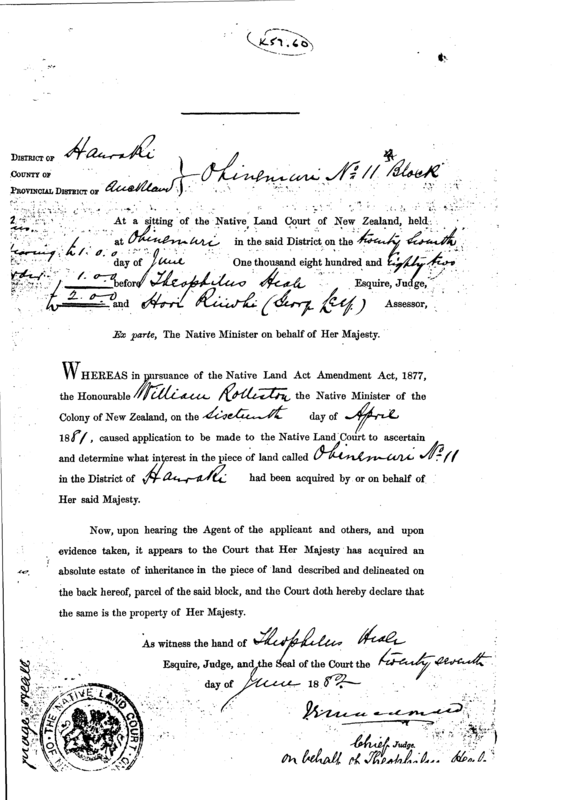 K57.60
DISTRICT OF Hauraki
COUNTY OF
PROVINCIAL DISTRICT OF Auckland } Ohinemuri No. 11 Block
At a sitting of the Native Land Court of New Zealand, held
at Ohinemuri in the said District on the twenty seventh
hearing £1.0.0 day of June One thousand eight hundred and Eighty two
order 1.0.0 before Theophilus Heale Esquire, Judge,
£2.0.0 and Hori Assessor,
Ex parte, The Native Minister on behalf of Her Majesty.
WHEREAS in pursuance of the Native Land Act Amendment Act, 1877,
the Honourable William Rolleston the Native Minister of the
Colony of New Zealand, on the Sixteenth day of April
1881, caused application to be made to the Native Land Court to ascertain
and determine what interest in the piece of land called Ohinemuri No. 11
in the District of Hauraki had been acquired by or on behalf of
Her said Majesty.
Now, upon hearing the Agent of the applicant and others, and upon
evidence taken, it appears to the Court that Her Majesty has acquired an
absolute estate of inheritance in the piece of land described and delineated on
the back hereof, parcel of the said block, and the Court doth hereby declare that
the same is the property of Her Majesty.
As witness the hand of Theophilus Heale
Esquire, Judge, and the Seal of the Court the twenty seventh
day of June 1882
Chief Judge.
on behalf of Theophilus Heale
THE NATIVE LAND COURT